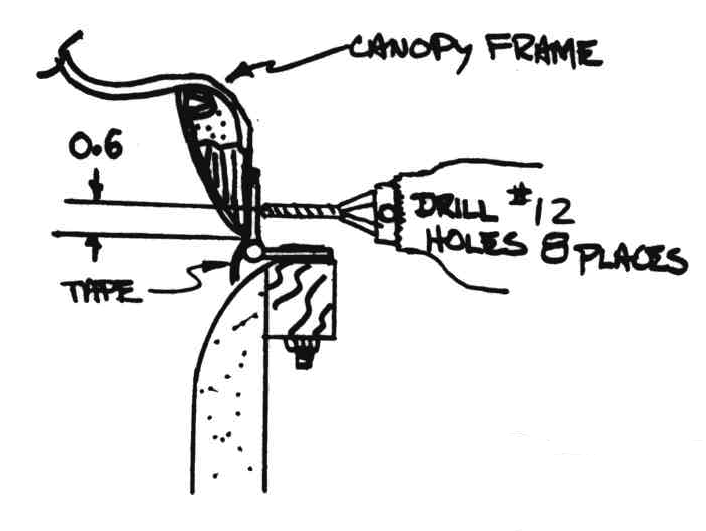 CANOPY FRAME
0.6
DRILL #12
HOLES 8 PLACES
TAPE